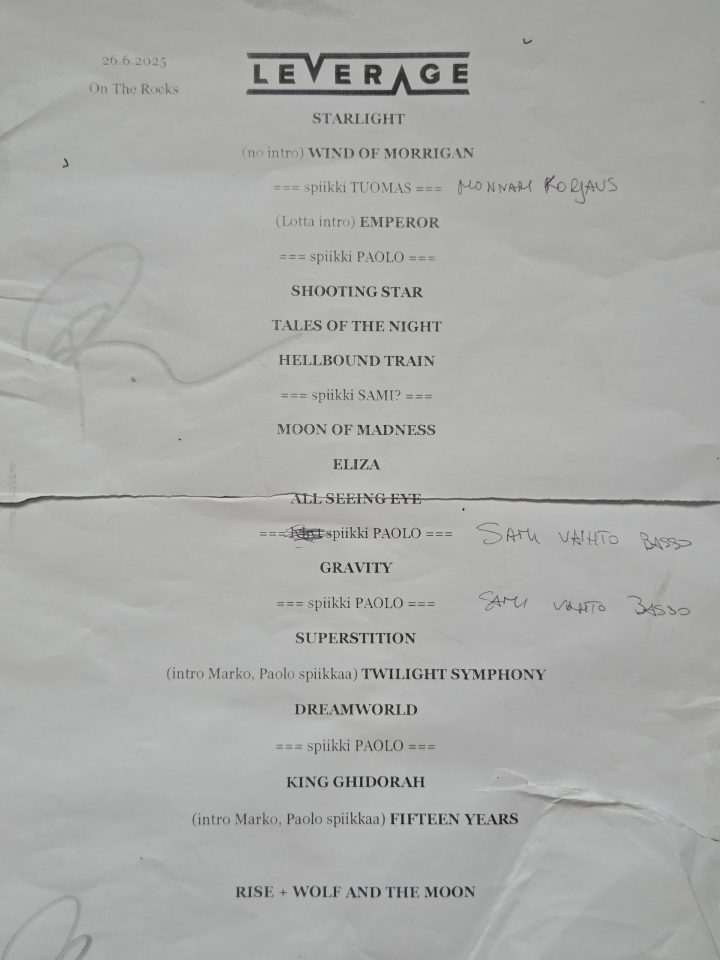 26.6.2025
On The Rocks
LEVERAGE
STARLIGHT
(no intro) WIND OF MORRIGAN
=== spiikki TUOMAS === MONNARI KORJAUS
(Lotta intro) EMPEROR
=== spiikki PAOLO ===
SHOOTING STAR
TALES OF THE NIGHT
HELLBOUND TRAIN
=== spiikki SAMI? ===
MOON OF MADNESS
ELIZA
ALL SEEING EYE
=== spiikki PAOLO === SAMI VAIHTO BASSO
GRAVITY
=== spiikki PAOLO === SAMI VAIHTO BASSO
SUPERSTITION
(intro Marko, Paolo spiikkaa) TWILIGHT SYMPHONY
DREAMWORLD
=== spiikki PAOLO ===
KING GHIDORAH
(intro Marko, Paolo spiikkaa) FIFTEEN YEARS
RISE + WOLF AND THE MOON